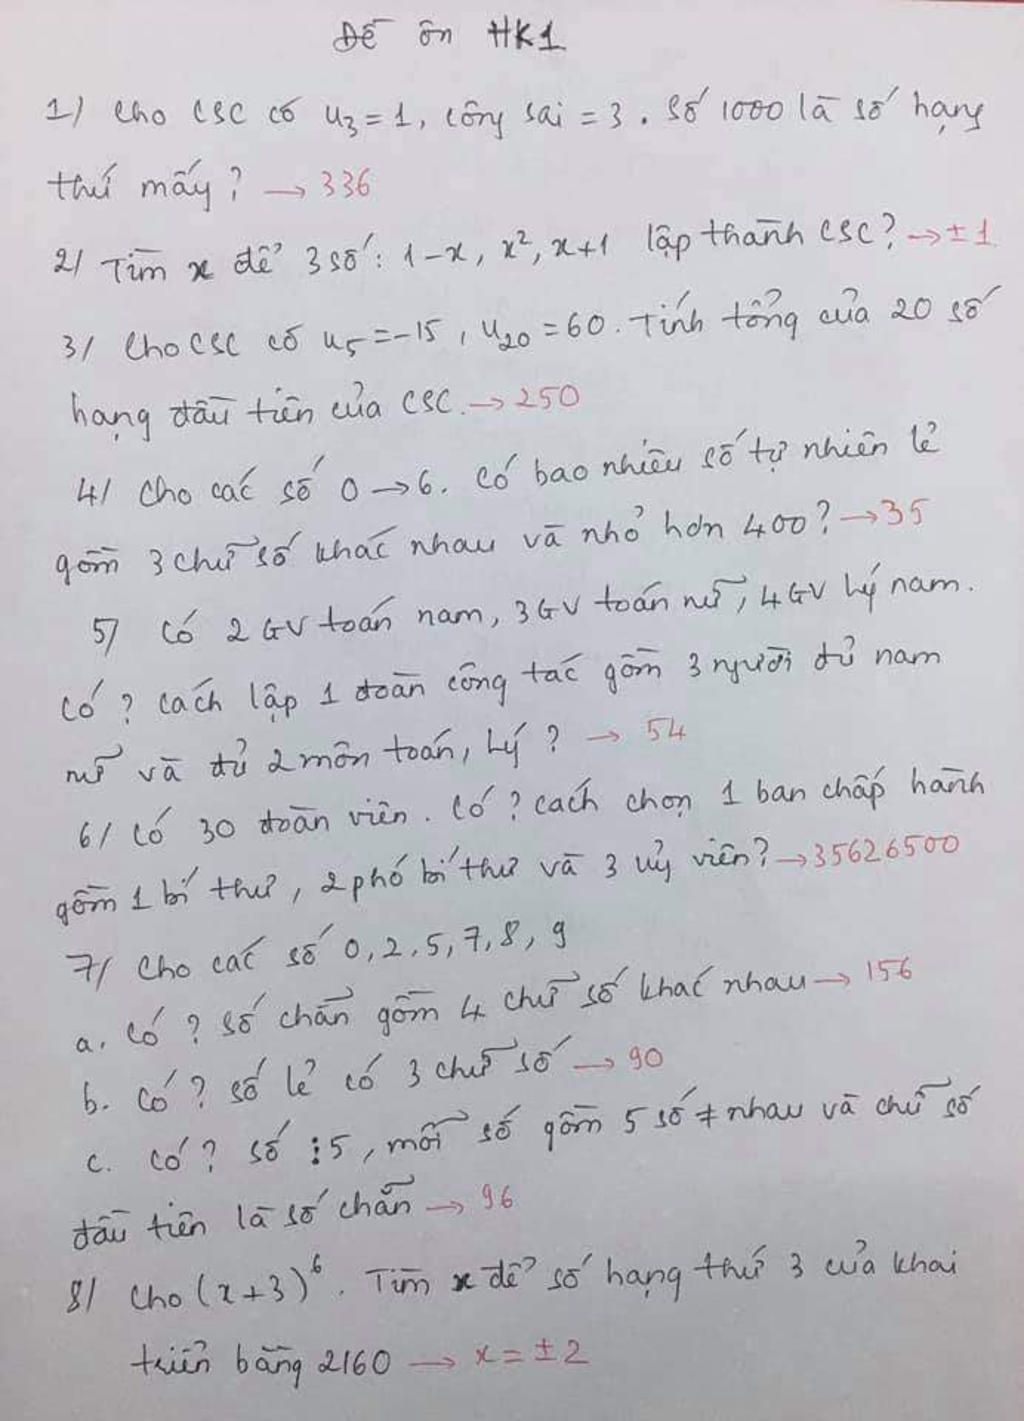 Đề ôn HK1
1/ Cho CSC có u₃ = 1, công sai = 3. Số 1000 là số hạng
thứ mấy? → 336
2/ Tìm x để 3 số: 1-x, x², x+1 lập thành CSC? → ±1
3/ Cho CSC có u₅ = -15, u₂₀ = 60. Tính tổng của 20 số
hạng đầu tiên của CSC. → 250
4/ Cho các số 0 → 6. Có bao nhiêu số tự nhiên lẻ
gồm 3 chữ số khác nhau và nhỏ hơn 400? → 35
5/ Có 2 GV toán nam, 3 GV toán nữ, 4 GV Lý nam.
Có ? cách lập 1 đoàn công tác gồm 3 người đủ nam
nữ và đủ 2 môn toán, Lý ? → 54
6/ Có 30 đoàn viên. Có ? cách chọn 1 ban chấp hành
gồm 1 bí thư, 2 phó bí thư và 3 uỷ viên? → 35626500
7/ Cho các số 0, 2, 5, 7, 8, 9
a. Có ? số chẵn gồm 4 chữ số khác nhau → 156
b. Có ? số lẻ có 3 chữ số → 90
c. Có ? số ⋮ 5, mỗi số gồm 5 số ≠ nhau và chữ số
đầu tiên là số chẵn → 96
8/ Cho (x+3)⁶. Tìm x để số hạng thứ 3 của khai
triển bằng 2160 → x = ±2